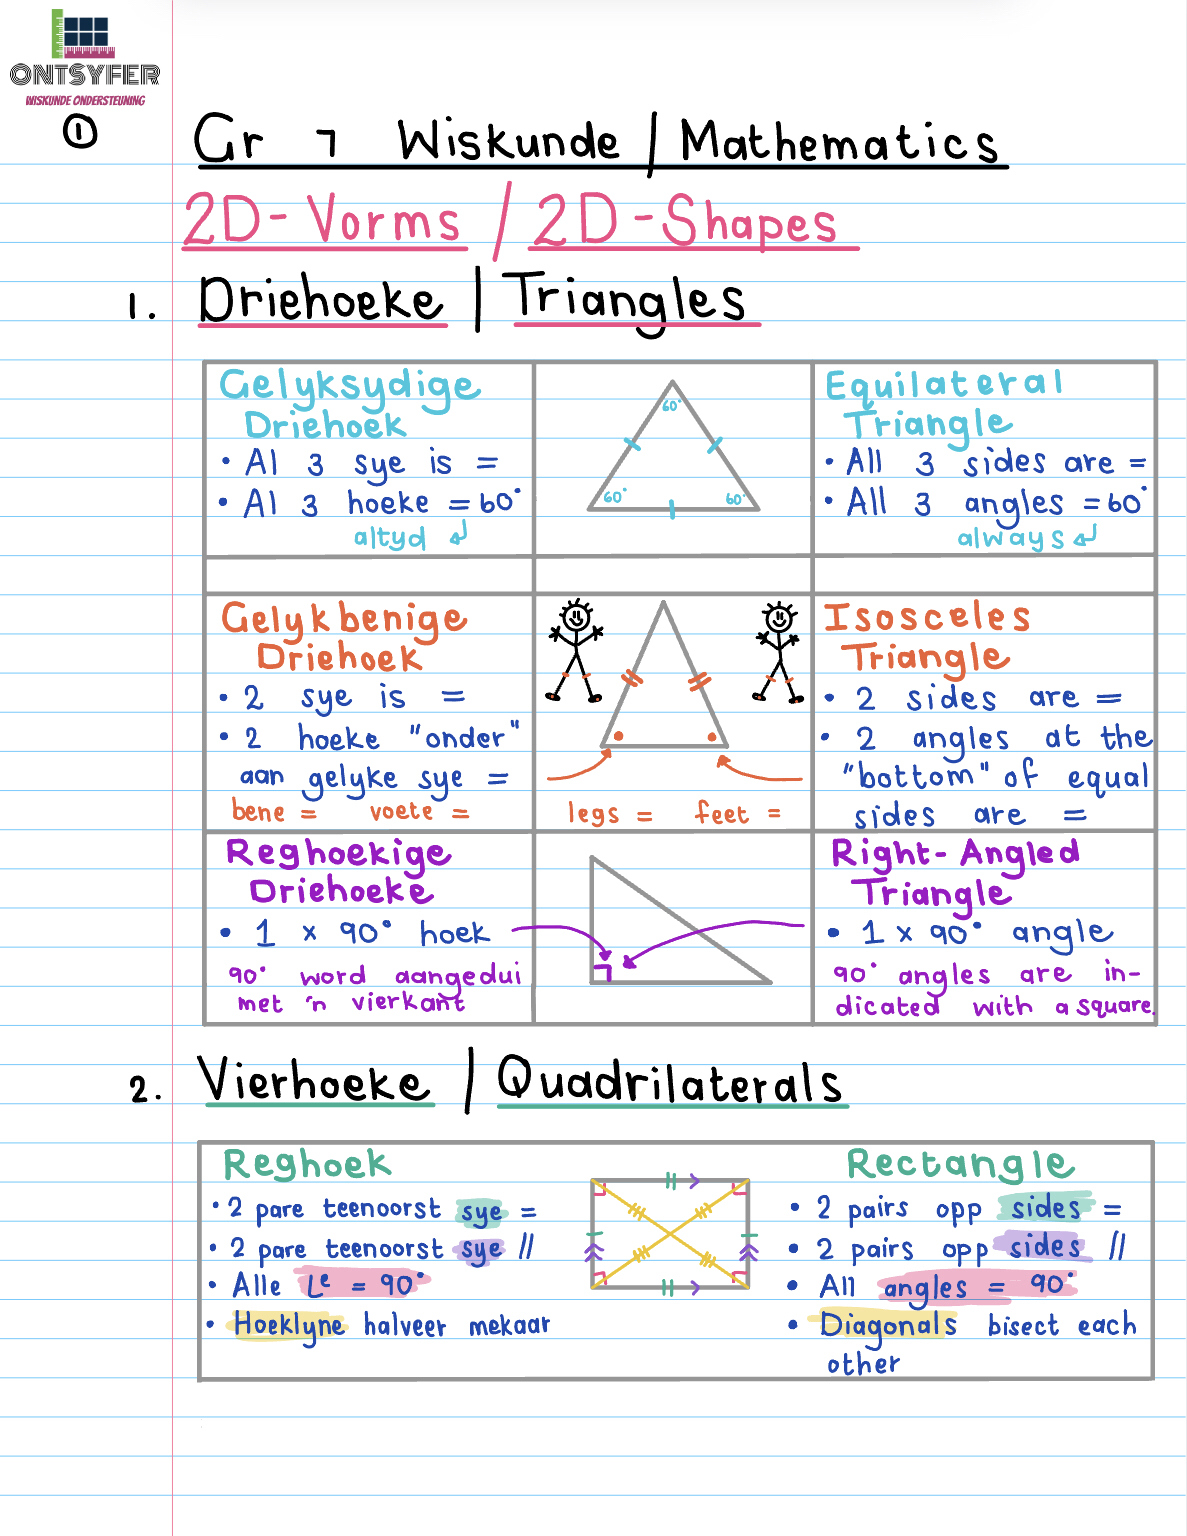 ONTSYFER
WISKUNDE ONDERSTEUNING
①
Gr 7 Wiskunde / Mathematics
2D-Vorms / 2D-Shapes
1. Driehoeke | Triangles
Gelyksydige
Driehoek
• Al 3 sye is =
• Al 3 hoeke = 60°
altyd ↲
60°
60° 60°
Equilateral
Triangle
• All 3 sides are =
• All 3 angles = 60°
always ↲
Gelykbenige
Driehoek
• 2 sye is =
• 2 hoeke "onder"
aan gelyke sye =
bene = voete =
legs = feet =
Isosceles
Triangle
• 2 sides are =
• 2 angles at the
"bottom" of equal
sides are =
Reghoekige
Driehoeke
• 1 x 90° hoek
90° word aangedui
met 'n vierkant
Right-Angled
Triangle
• 1 x 90° angle
90° angles are in-
dicated with a square.
2. Vierhoeke | Quadrilaterals
Reghoek
• 2 pare teenoorst sye =
• 2 pare teenoorst sye //
• Alle Lᵉ = 90°
• Hoeklyne halveer mekaar
Rectangle
• 2 pairs opp sides =
• 2 pairs opp sides //
• All angles = 90°
• Diagonals bisect each
other